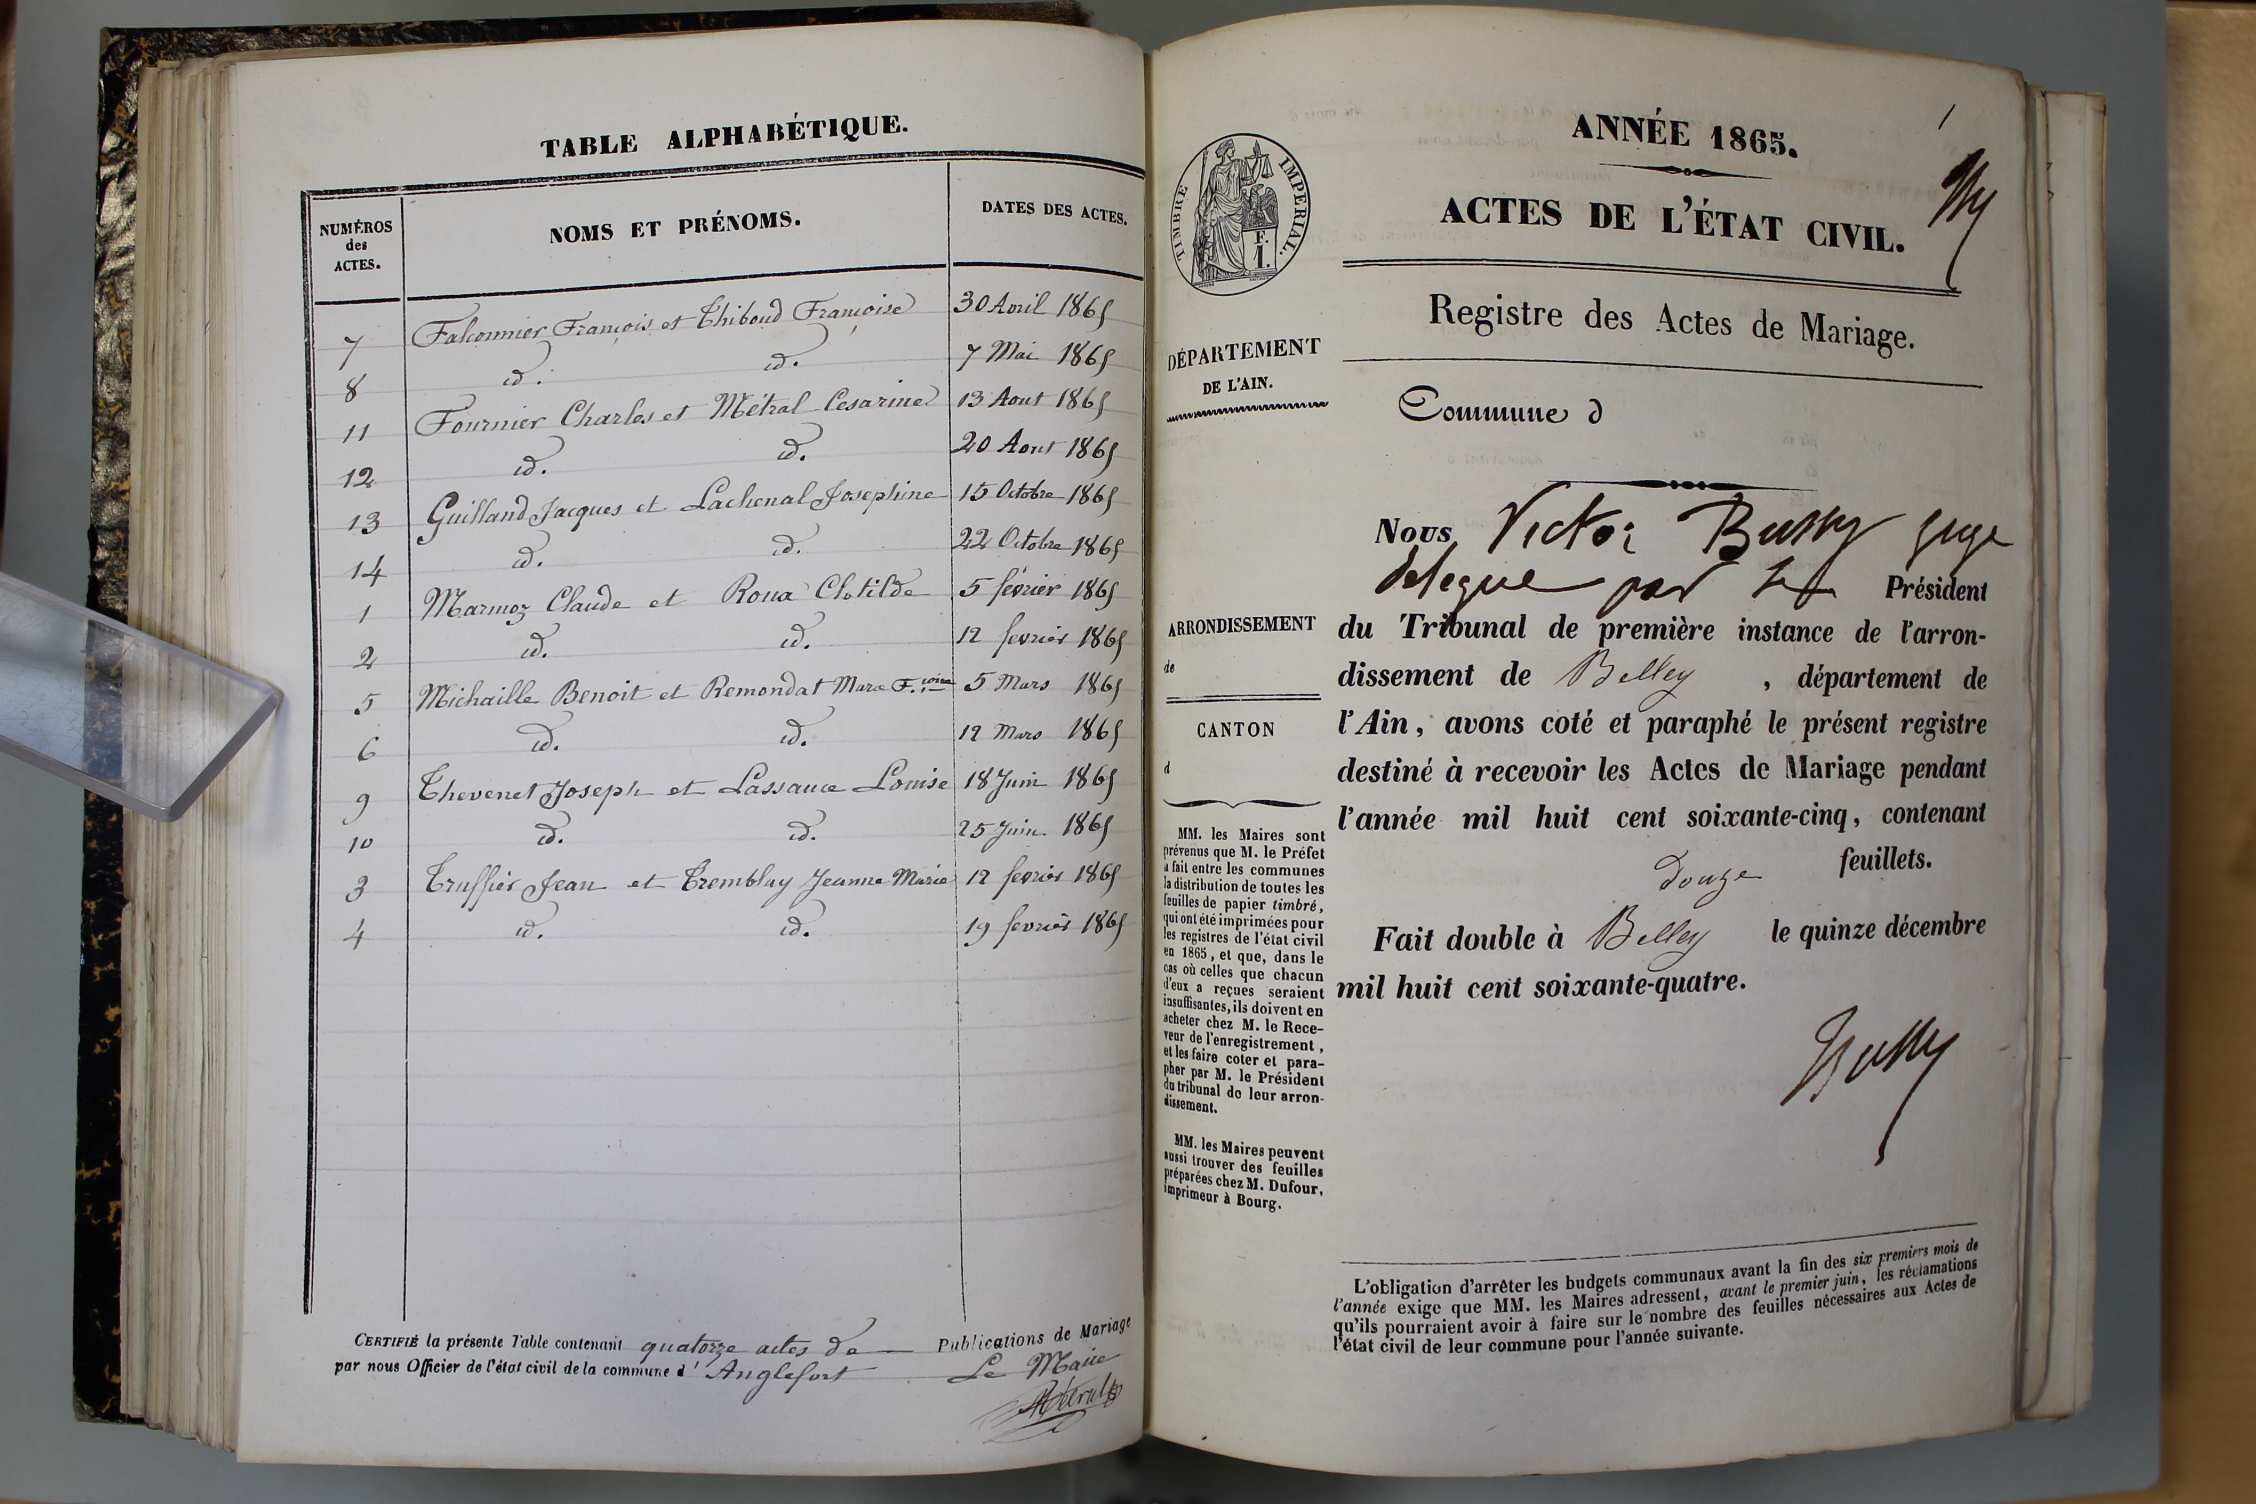 TABLE ALPHABÉTIQUE.
NUMÉROS
des
ACTES.
NOMS ET PRÉNOMS.
DATES DES ACTES.
7 Falconnier François et Thiboud Françoise 30 Avril 1865
8 id. id. 7 Mai 1865
11 Fournier Charles et Métral Cesarine 13 Aout 1865
12 id. id. 20 Aout 1865
13 Guilland Jacques et Lachenal Josephine 15 Octobre 1865
14 id. id. 22 Octobre 1865
1 Marmoz Claude et Roua Clotilde 5 février 1865
2 id. id. 12 fevrier 1865
5 Michaille Benoit et Remondat Marie F.çoise 5 Mars 1865
6 id. id. 12 Mars 1865
9 Thevenet Joseph et Lassauce Louise 18 Juin 1865
10 id. id. 25 Juin 1865
3 Truffier Jean et Tremblay Jeanne Marie 12 fevrier 1865
4 id. id. 19 fevrier 1865
CERTIFIÉ la présente Table contenant quatorze actes de Publications de Mariage
par nous Officier de l'état civil de la commune d' Anglefort
Le Maire
ANNÉE 1865.
1
ACTES DE L'ÉTAT CIVIL.
Registre des Actes de Mariage.
TIMBRE IMPERIAL.
F.
1.
DÉPARTEMENT
DE L'AIN.
Commune d
ARRONDISSEMENT
de
CANTON
d
MM. les Maires sont
prévenus que M. le Préfet
a fait entre les communes
la distribution de toutes les
feuilles de papier timbré,
qui ont été imprimées pour
les registres de l'état civil
en 1865, et que, dans le
cas où celles que chacun
d'eux a reçues seraient
insuffisantes, ils doivent en
acheter chez M. le Rece-
veur de l'enregistrement,
et les faire coter et para-
pher par M. le Président
du tribunal de leur arron-
dissement.
MM. les Maires peuvent
aussi trouver des feuilles
préparées chez M. Dufour,
imprimeur à Bourg.
Nous Victor Bussy juge
delegue par le Président
du Tribunal de première instance de l'arron-
dissement de Belley, département de
l'Ain, avons coté et paraphé le présent registre
destiné à recevoir les Actes de Mariage pendant
l'année mil huit cent soixante-cinq, contenant
douze feuillets.
Fait double à Belley le quinze décembre
mil huit cent soixante-quatre.
Bussy
L'obligation d'arrêter les budgets communaux avant la fin des six premiers mois de
l'année exige que MM. les Maires adressent, avant le premier juin, les réclamations
qu'ils pourraient avoir à faire sur le nombre des feuilles nécessaires aux Actes de
l'état civil de leur commune pour l'année suivante.